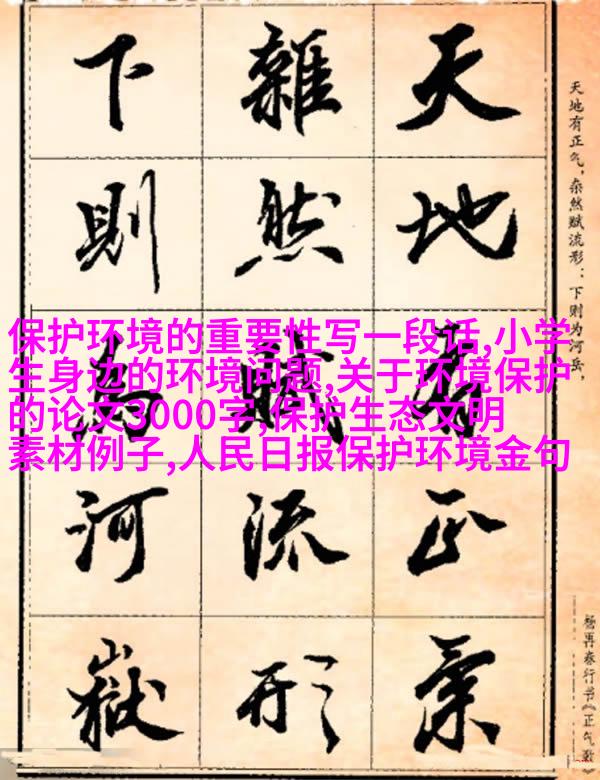 天地有正氣
雜然賦流形
下則為河嶽
天地有正气，杂然赋流形：下则为河岳，
杨再春行书《正气歌》
保护环境的重要性写一段话,小学
生身边的环境问题,关于环境保护
的论文3000字,保护生态文明
素材例子,人民日报保护环境金句